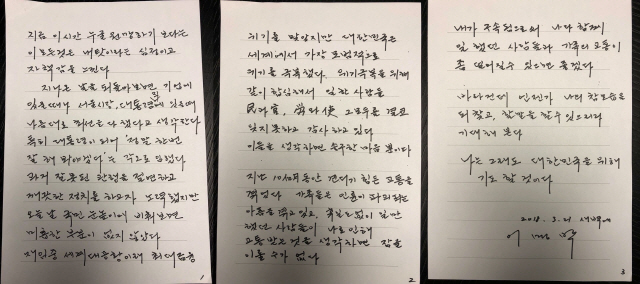 지금 이 시간 누굴 원망하기 보다는
이 모든것은 내 탓이라는 심정이고
자책감을 느낀다
지나온 날을 되돌아보면, 기업에
있을때나 서울시장, 대통령직에 있을때
나름대로 최선을 다 했다고 생각한다
특히 대통령이 되어 '정말 한번
잘 해 봐야겠다'는 각오로 임했다
과거 잘못된 관행을 절연하고
깨끗한 정치를 하고자 노력했지만
오늘날 국민 눈높이에 비춰보면
미흡한 부분이 없지 않았다
재임중 세계대공황이래 최대 금융
1
위기를 맞았지만 대한민국은
세계에서 가장 모범적으로
위기를 극복했다. 위기극복을 위해
같이 합심해서 일한 사람들
民과 官, 勞와 使 그 모두를 결코
잊지 못하고 감사하고 있다
이들을 생각하면 송구한 마음 뿐이다
지난 10개월동안 견디기 힘든 고통을
겪었다 가족들은 인륜이 파괴되는
아픔을 겪고 있고, 휴일도 없이 일만
했던 사람들이 나로 인해
고통받는 것을 생각하면 잠을
이룰 수가 없다
2
내가 구속됨으로써 나와 함께
일했던 사람들과 가족의 고통이
좀 덜어질 수 있으면 좋겠다
바라건데 언젠가 나의 참모습을
되찾고, 할 말을 할 수 있으리라
기대해 본다
나는 그래도 대한민국을 위해
기도 할 것이다
2018. 3. 21 새벽에
이 명 박
3